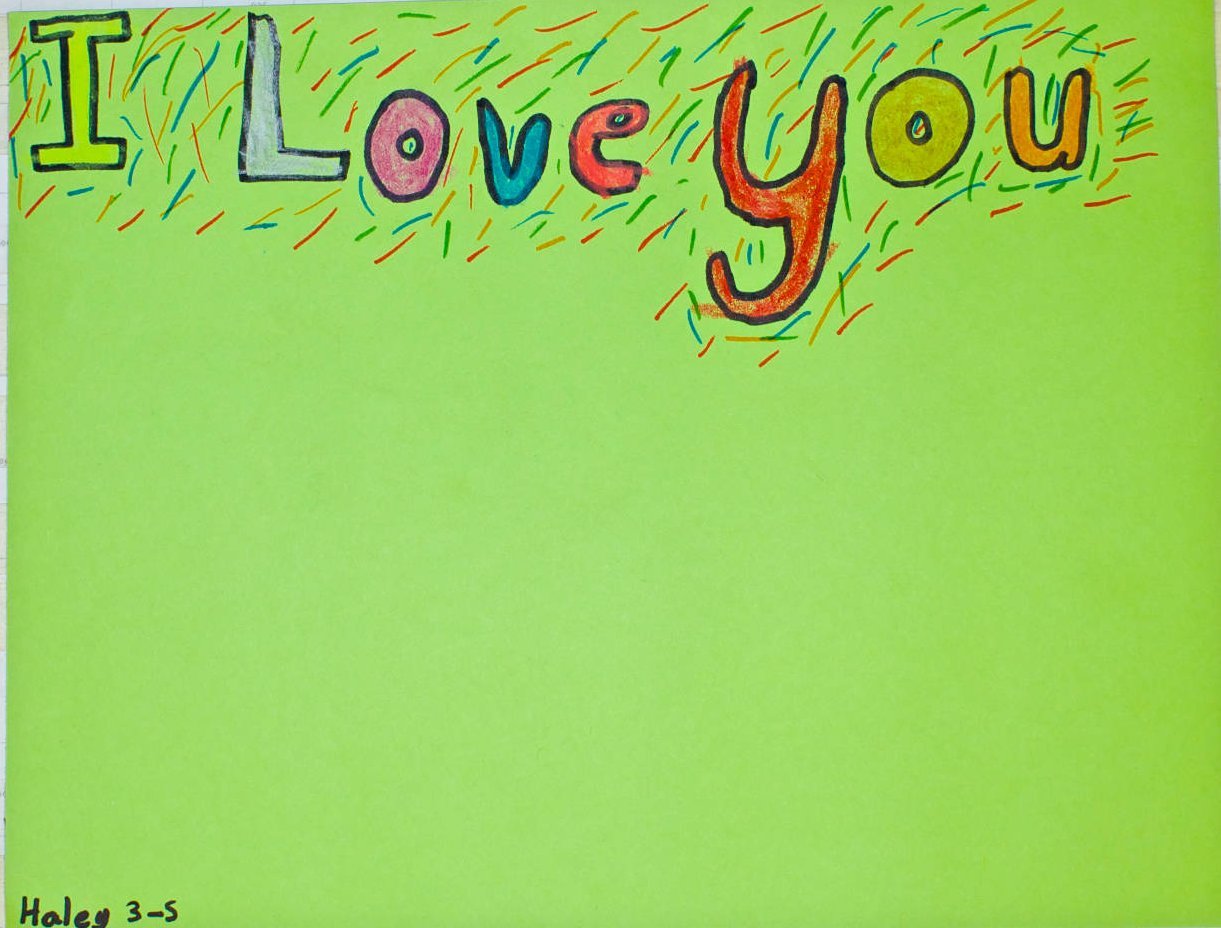 I Love you
Haley 3-S